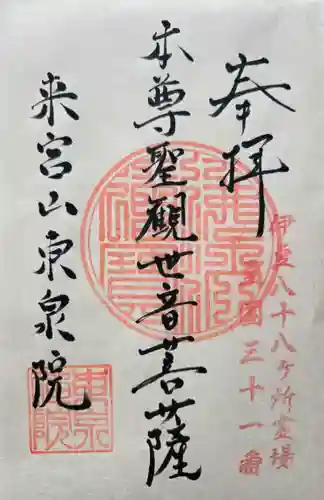 伊豆八十八ヶ所霊場
三十一番
奉拝
本尊聖觀世音菩薩
来宮山東泉院
東泉院